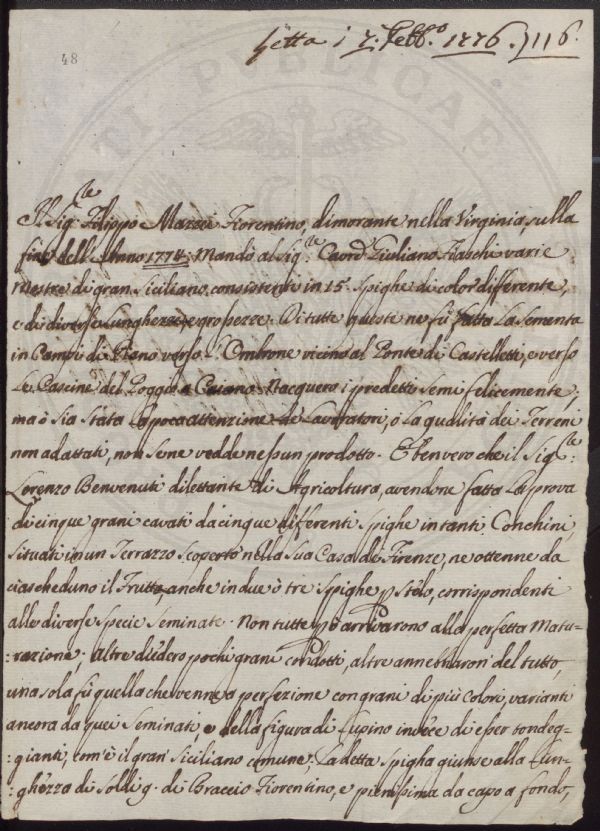 48
Letta i 7. Febb.º 1776. 116.
Il Sig.le Filippo Mazzei Fiorentino, dimorante nella Virginia, sulla
fine dell'Anno 1774. Mandò al Sig.le Cavre Giuliano Fiaschi varie
Mostre di gran Siciliano consistenti in 15. Spighe di color differente,
e di diverse lunghezze, e grossezze. Di tutte queste ne fù fatta la Sementa
in Campi di Piano verso l'Ombrone vicino al Ponte di Castelletti, e verso
le Cascine del Poggio a Caiano. Nacquero i predetti semi felicemente,
ma ò sia stata la poca attenzione de Lavoratori, ò la qualità dei Terreni
non adattati, non se ne vedde nessun prodotto. E ben vero che il Sig.le
Lorenzo Benvenuti dilettante di Agricoltura, avendone fatta la prova
di cinque grani cavati da cinque differenti Spighe in tanti Conchini,
situati in un Terrazzo scoperto nella sua Casa di Firenze, ne ottenne da
ciascheduno il Frutto, anche in due ò tre Spighe p Stelo, corrispondenti
alle diverse specie seminate. Non tutte pò arrivarono alla perfetta Matu=
=razione; altre diedero pochi grani condotti, altre annebbiaron' del tutto,
una sola fù quella che venne a perfezione con grani di più colori, varianti
ancora da quei seminati e della figura di Lupino invece di esser tondeg=
=gianti, com'è il gran Siciliano comune; La detta spiga giunse alla Lun=
=ghezza di Soldi 9. di Braccio Fiorentino, e pienissima da capo a fondo,
PUBLICAE